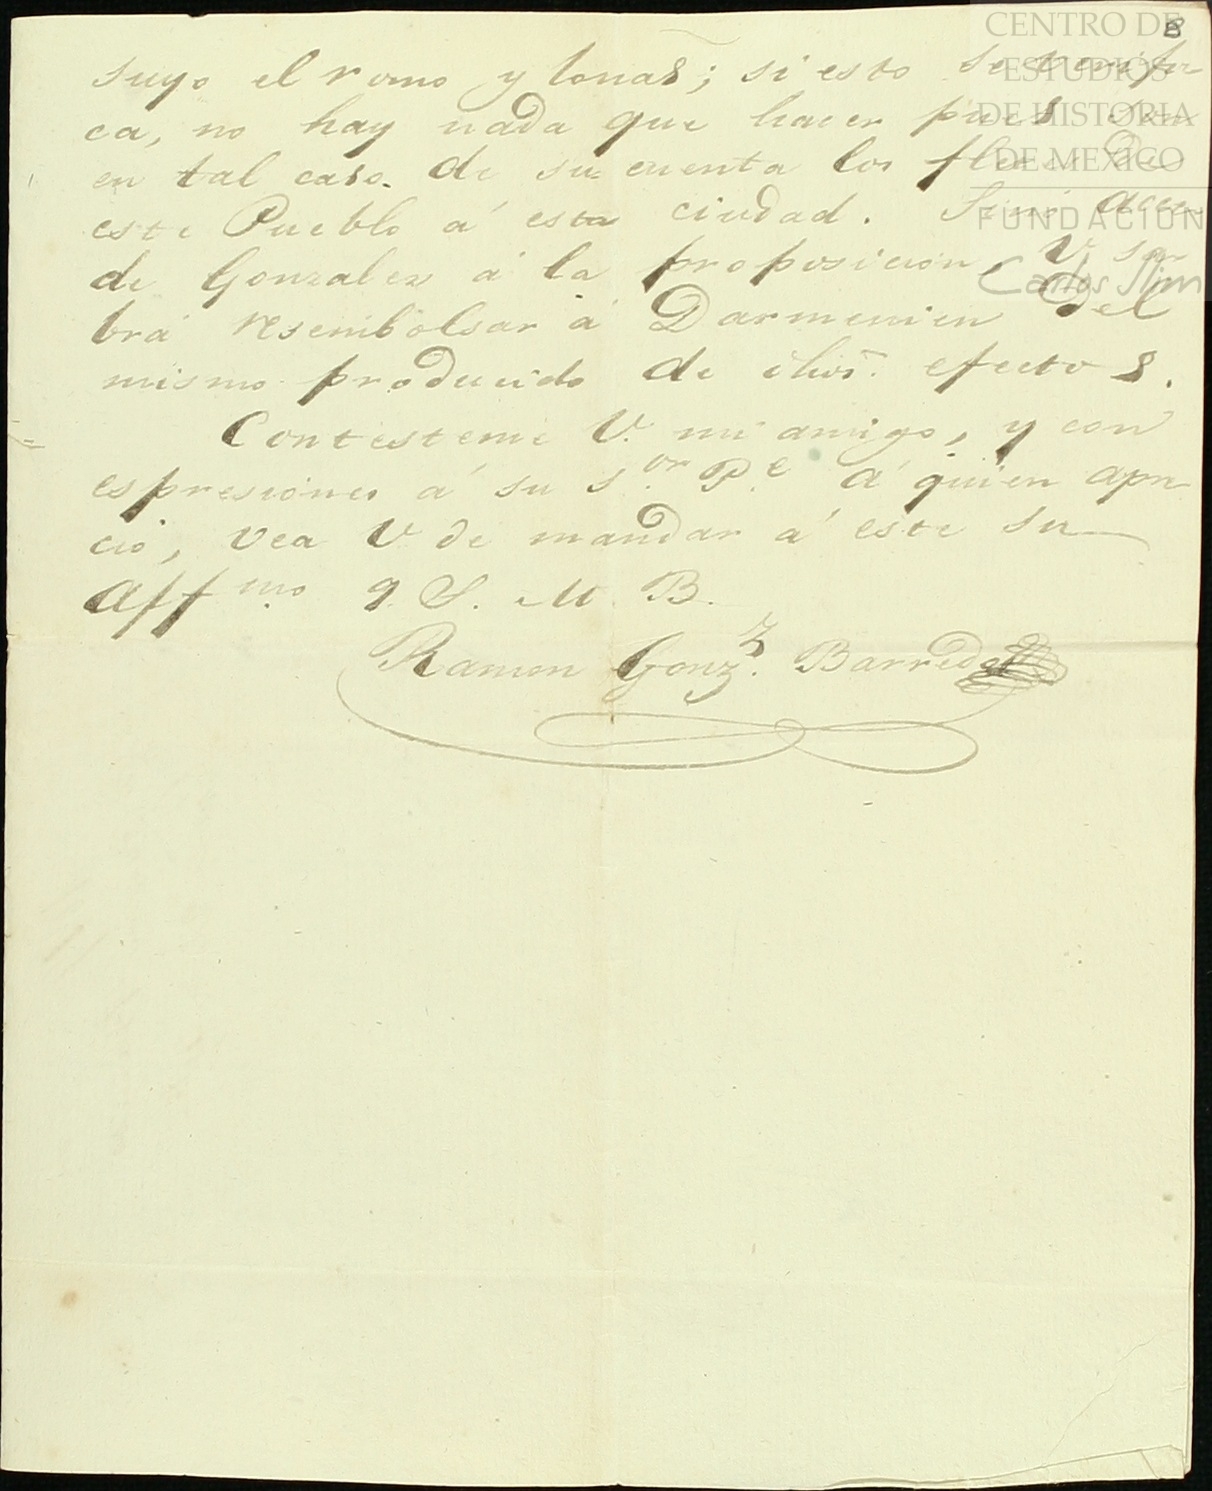 8
CENTRO DE
ESTUDIOS
DE HISTORIA
DE MEXICO
FUNDACIÓN
Carlos Slim
suyo el romo y lonas; si esto se verifi-
ca, no hay nada que hacer pues son
en tal caso de su cuenta los fletes de
este Pueblo á esta ciudad. Sino acce-
de Gonzalez á la proposicion, V. sa-
brá rembolsar á Darmenien del
mismo producido de dhos. efectos.
Contesteme V. mi amigo, y con
espresiones á su S.or P.e á quien apre-
cio, vea V. de mandar á este su
Aff.mo q. S. M. B.
Ramon Gonz.z Barreda